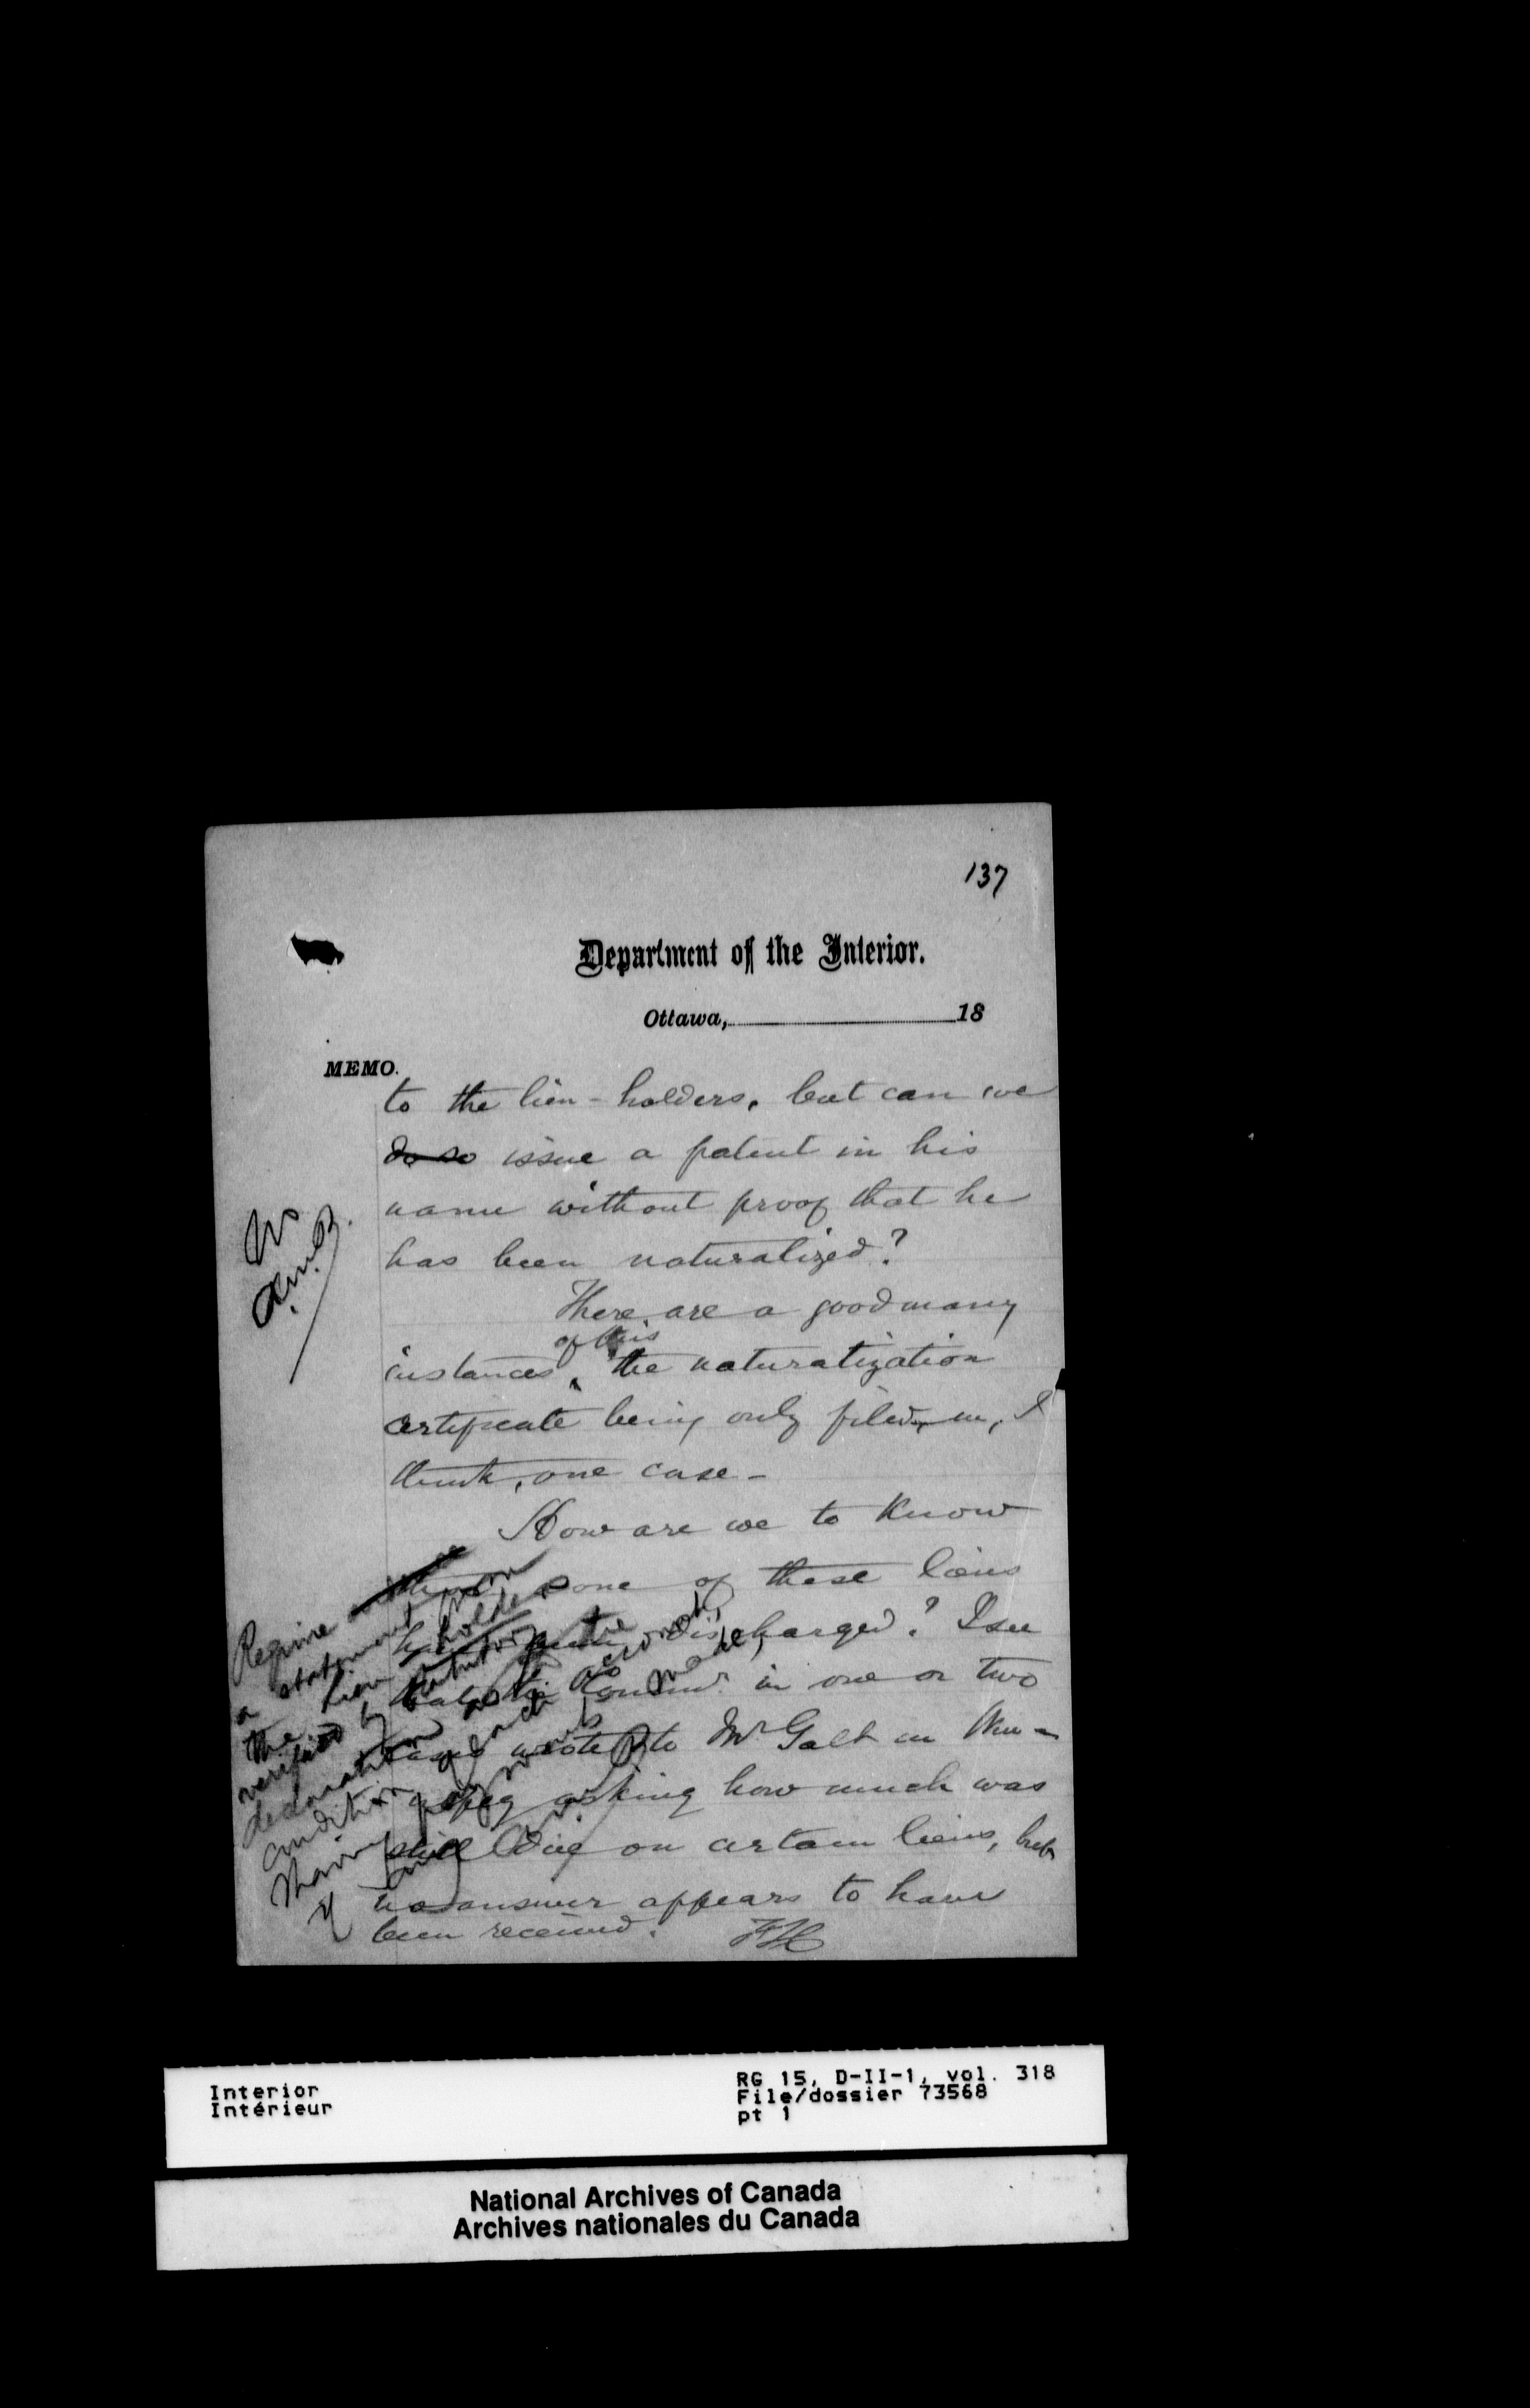 137
Department of the Interior.
Ottawa, 18
MEMO.
to the lien-holders, but can we
do so issue a patent in his
name without proof that he
has been naturalized?
No
A.M.B.
There are a good many
of this
instances, the naturalization
certificate being only filed, in, I
think, one case -
How are we to know
none of these liens
have been discharged? I see
that the Commr. in one or two
cases wrote to Mr Galt in Win-
nipeg asking how much was
still due on certain liens, but
no answer appears to have
been received.
FH
Require
a statement from
the lien holder
verified by statutory
declaration as to the
condition of each account,
showing payments made,
if any
Interior
Intérieur
RG 15, D-II-1, vol. 318
File/dossier 73568
pt 1
National Archives of Canada
Archives nationales du Canada